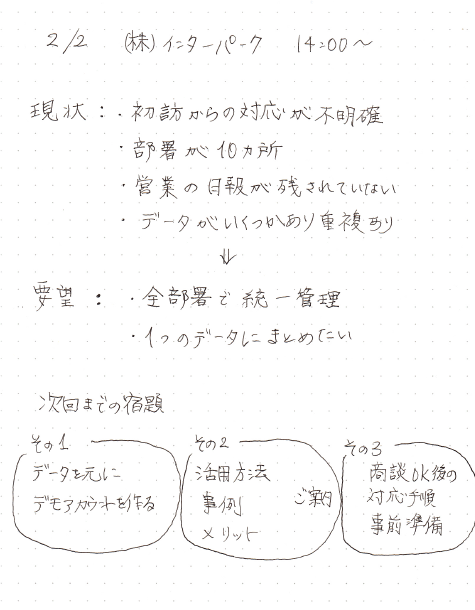 2/2 (株)インターパーク 14:00〜
現状：・初訪からの対応が不明確
・部署が10カ所
・営業の日報が残されていない
・データがいくつかあり重複あり
⇓
要望：・全部署で統一管理
・1つのデータにまとめたい
次回までの宿題
その1
データを元に
デモアカウントを作る
その2
活用方法
事例 ご案内
メリット
その3
商談OK後の
対応手順
事前準備